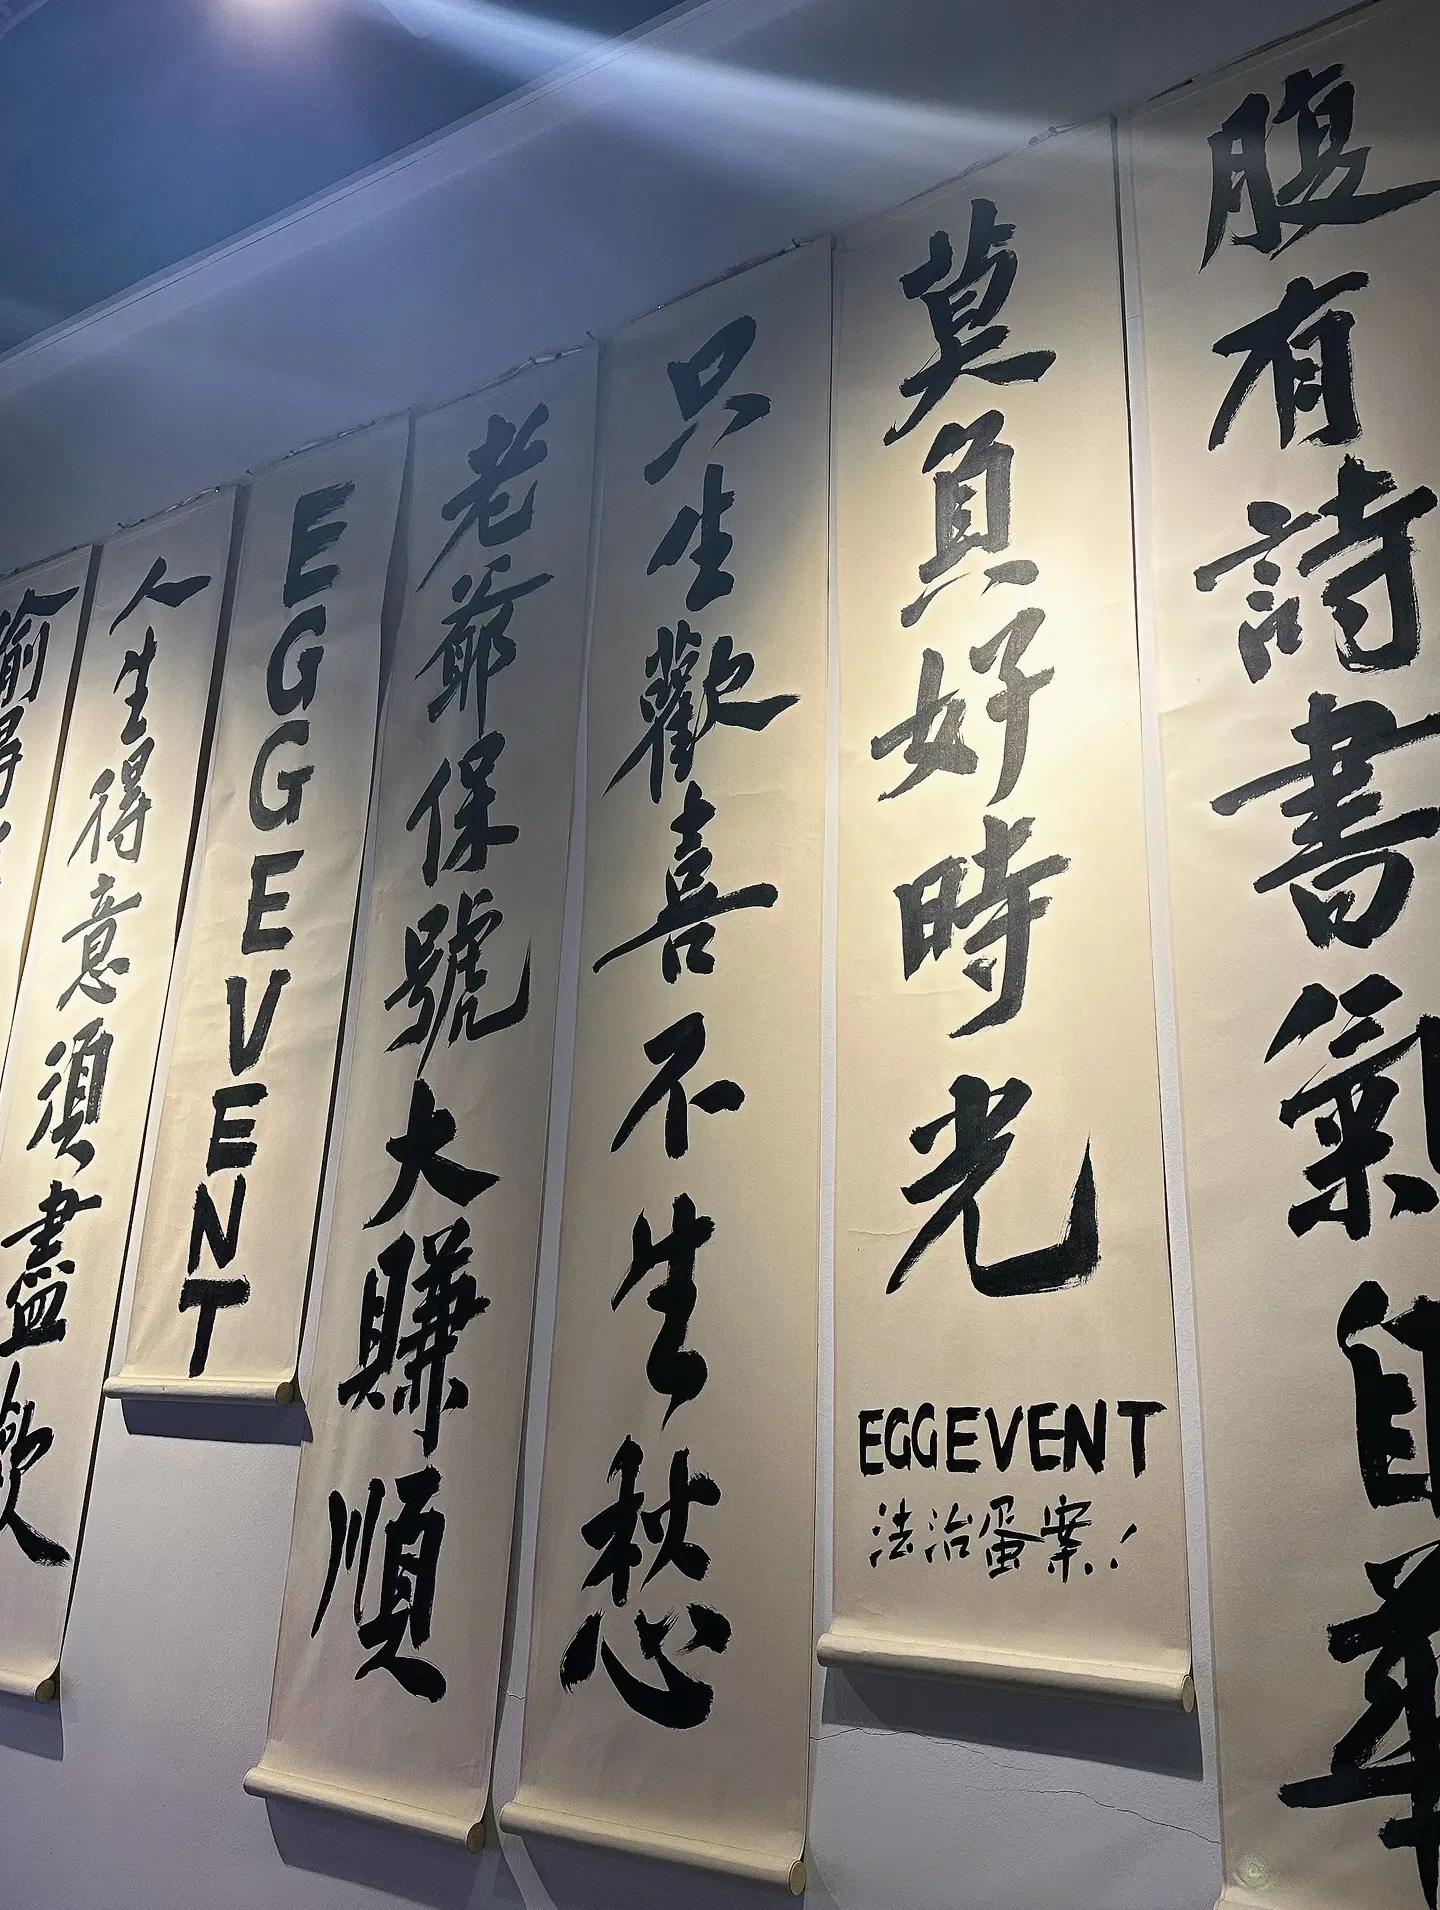 腹有詩書氣自華
莫負好時光
EGGEVENT
法治蛋案!
只生歡喜不生愁
老爺保號大賺順
EGGEVENT
人生得意須盡歡
偷得